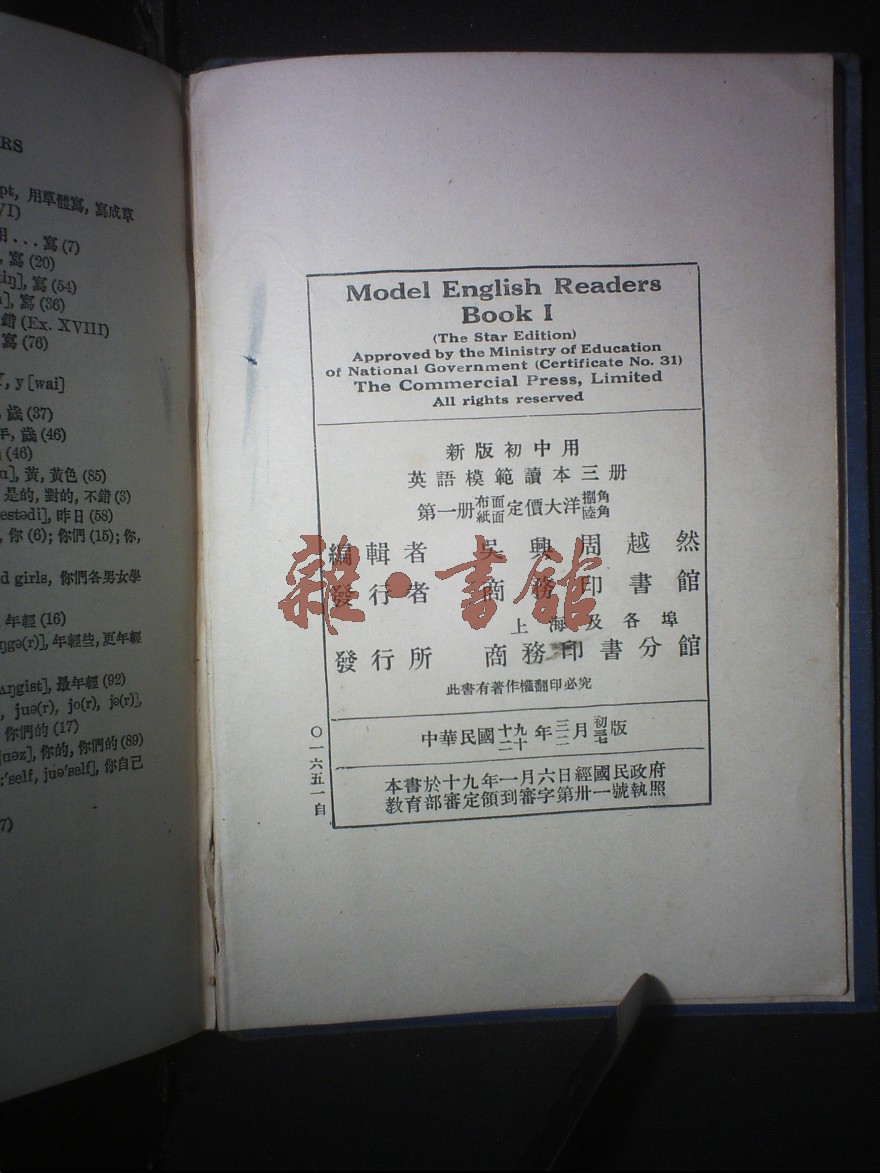 RS
pt, 用草體寫, 寫成草
VI)
用...寫 (7)
, 寫 (20)
tiŋ], 寫 (54)
], 寫 (36)
錯 (Ex. XVIII)
寫 (76)
, y [wai]
, 歲 (37)
年, 歲 (46)
(46)
], 黃, 黃色 (85)
是的, 對的, 不錯 (3)
estədi], 昨日 (58)
, 你 (6); 你們 (15); 你,
d girls, 你們各男女學
, 年輕 (16)
ŋgə(r)], 年輕些, 更年輕
ʌŋgist], 最年輕 (92)
, juə(r), jo(r), jə(r)],
你們的 (17)
juəz], 你的, 你們的 (89)
:'self, juə'self], 你自己
7)
Model English Readers
Book I
(The Star Edition)
Approved by the Ministry of Education
of National Government (Certificate No. 31)
The Commercial Press, Limited
All rights reserved
新版初中用
英語模範讀本三册
第一册布面紙面定價大洋捌角陸角
編輯者 吳興周越然
發行者 商務印書館
上海及各埠
發行所 商務印書分館
此書有著作權翻印必究
中華民國十九二十年三二月初三七版
本書於十九年一月六日經國民政府
教育部審定領到審字第卅一號執照
〇一六五一自
雜·書館